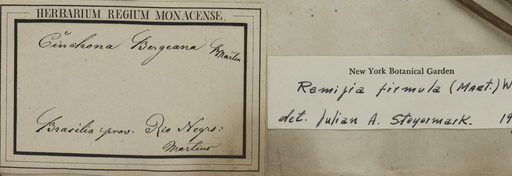 HERBARIUM REGIUM MONACENSE.
Cinchona Bergeana Martius
Brasilia prov. Rio Negro:
Martius
New York Botanical Garden
Remijia firmula (Mart.) W
det. Julian A. Steyermark. 19